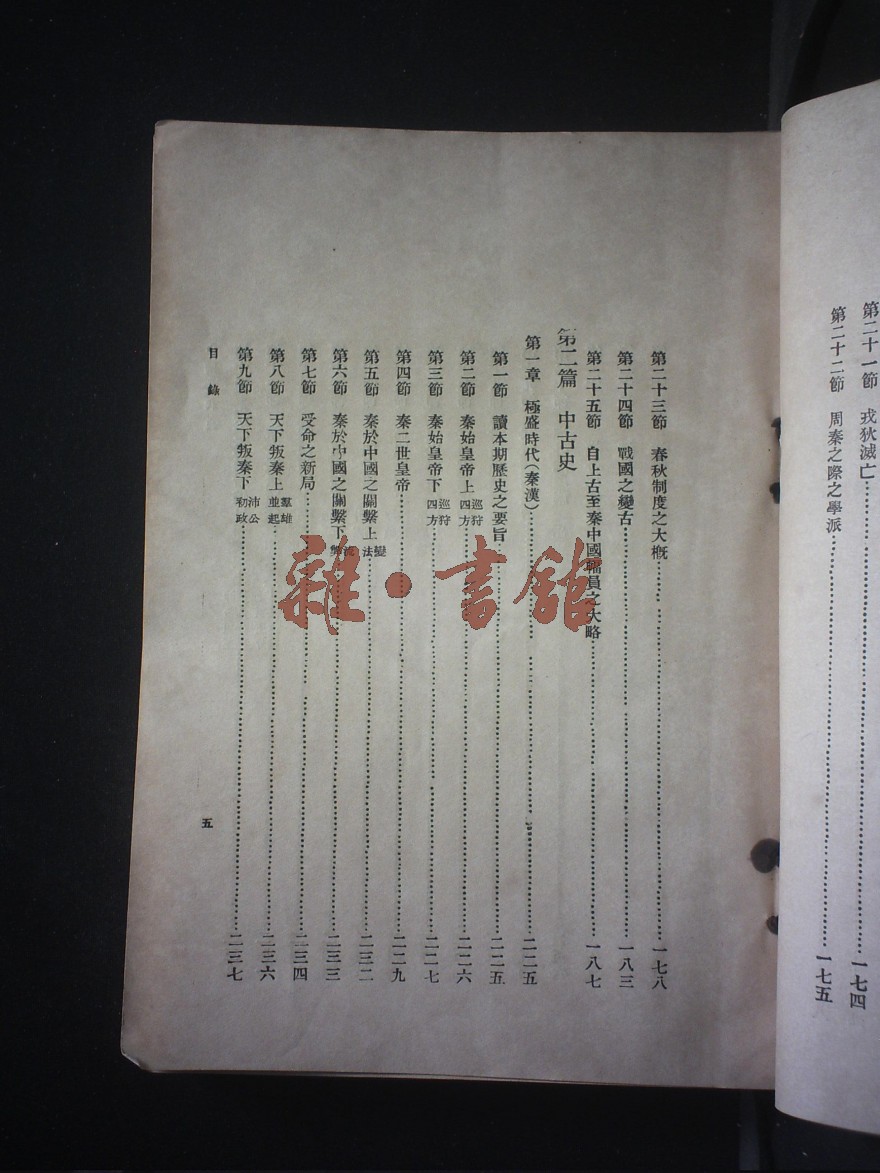 第二十一節 戎狄滅亡……一七四
第二十二節 周秦之際之學派……一七五
第二十三節 春秋制度之大概……一七八
第二十四節 戰國之變古……一八三
第二十五節 自上古至秦中國幅員之大略……一八七
第二篇 中古史
第一章 極盛時代(秦漢)……二二五
第一節 讀本期歷史之要旨……二二五
第二節 秦始皇帝上 巡狩四方……二二六
第三節 秦始皇帝下 巡狩四方……二二七
第四節 秦二世皇帝……二二九
第五節 秦於中國之關繫上 變法……二三二
第六節 秦於中國之關繫下……二三三
第七節 受命之新局……二三四
第八節 天下叛秦上 羣雄並起……二三六
第九節 天下叛秦下 沛公初政……二三七
目錄
五
雜·書館